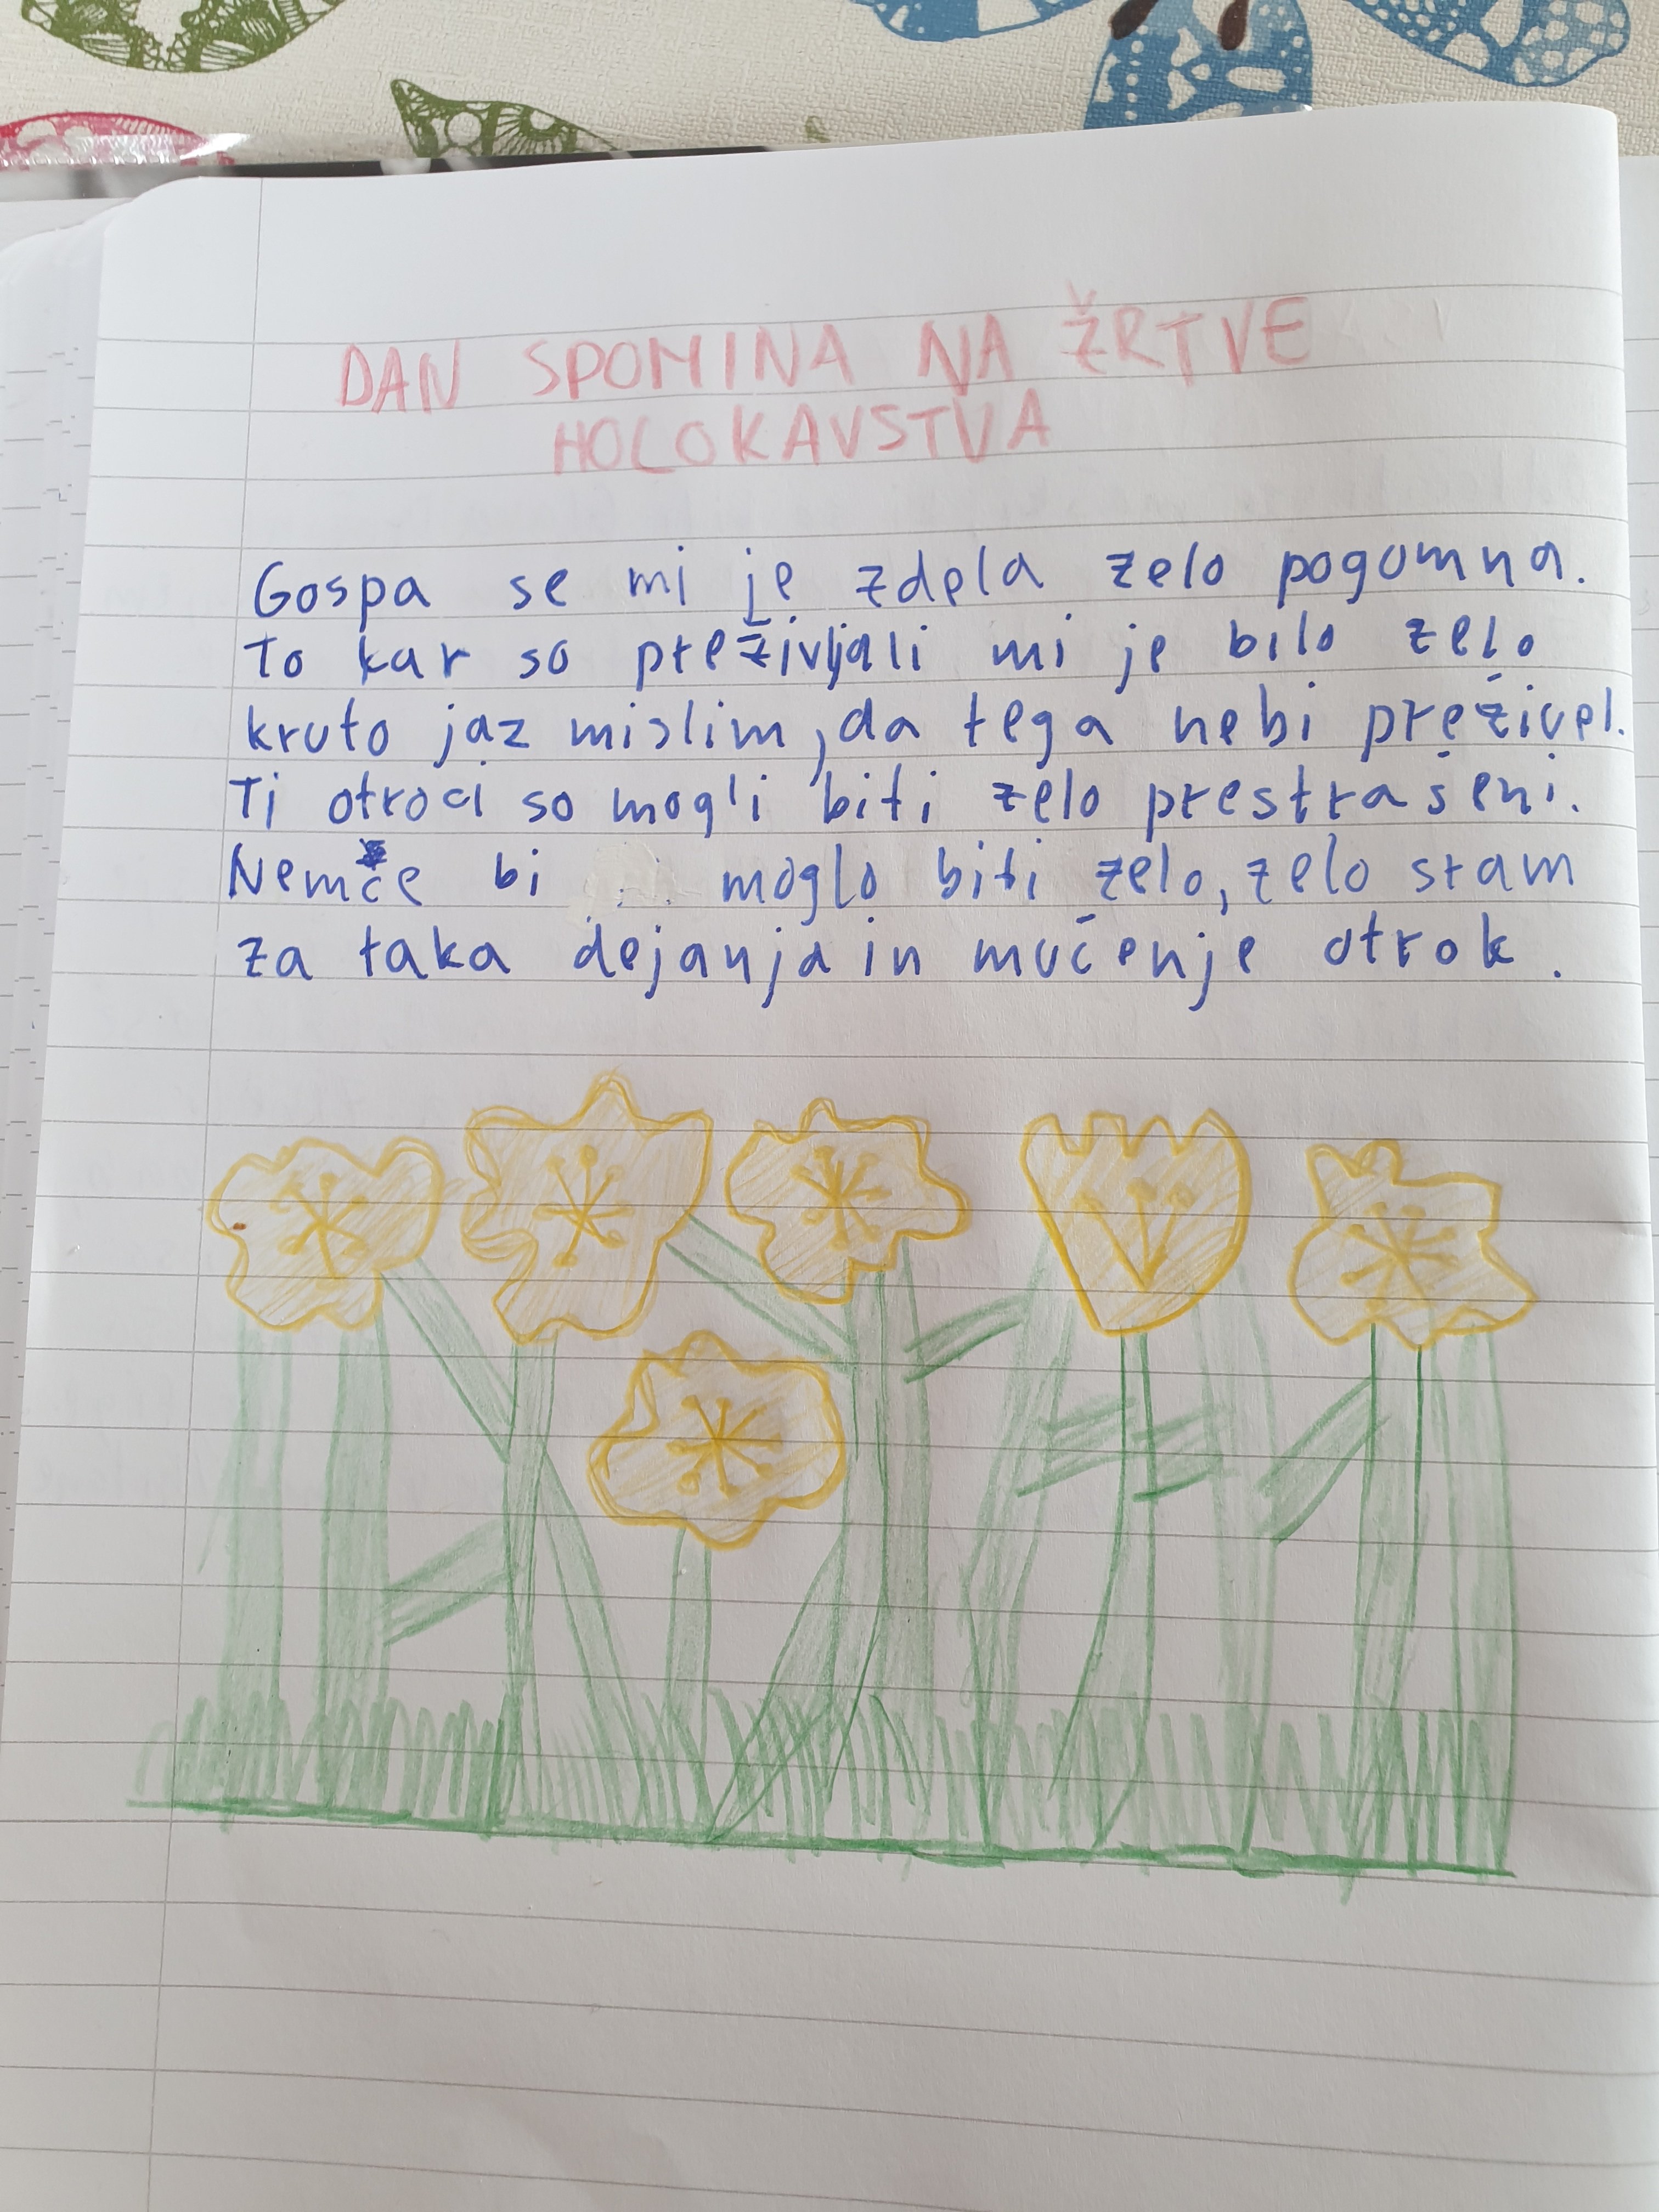 DAN SPOMINA NA ŽRTVE
HOLOKAVSTVA
Gospa se mi je zdela zelo pogumna.
To kar so preživljali mi je bilo zelo
kruto jaz mislim, da tega nebi preživel.
Ti otroci so mogli biti zelo prestrašeni.
Nemče bi moglo biti zelo, zelo sram
za taka dejanja in mučenje otrok.